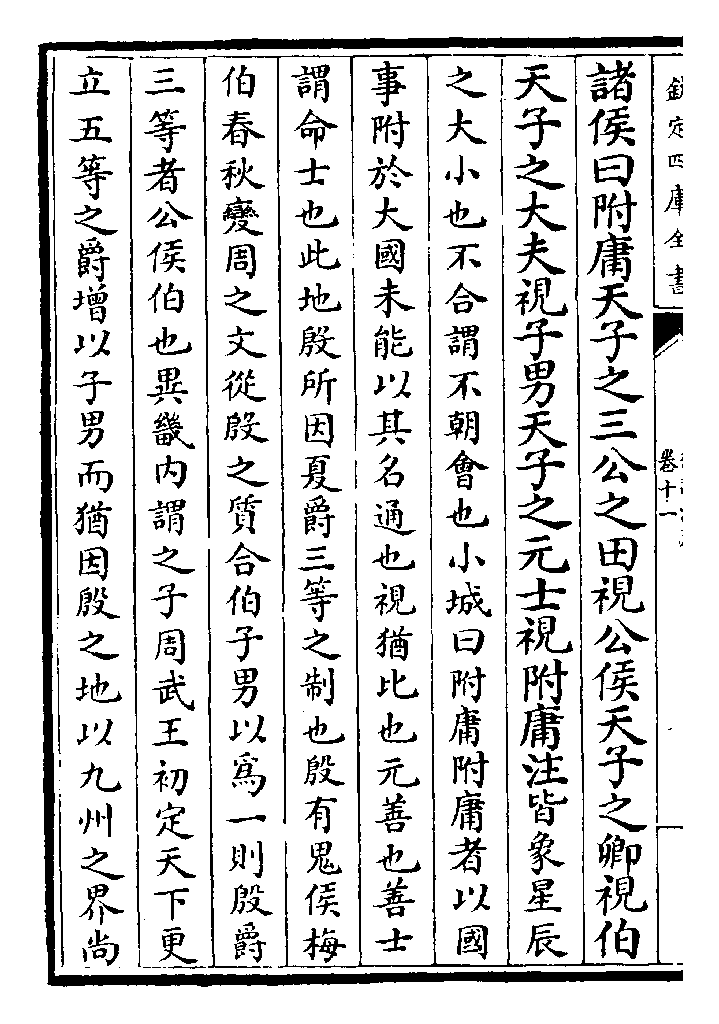 欽定四庫全書
卷十一
諸侯曰附庸天子之三公之田視公侯天子之卿視伯
天子之大夫視子男天子之元士視附庸注皆象星辰
之大小也不合謂不朝會也小城曰附庸附庸者以國
事附於大國未能以其名通也視猶比也元善也善士
謂命士也此地殷所因夏爵三等之制也殷有鬼侯梅
伯春秋變周之文從殷之質合伯子男以爲一則殷爵
三等者公侯伯也異畿内謂之子周武王初定天下更
立五等之爵增以子男而猶因殷之地以九州之界尚